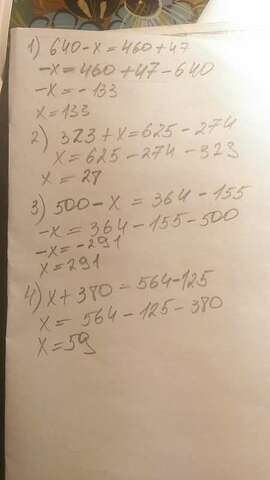 1) 640-x=460+47
-x=460+47-640
-x=-133
x=133
2) 323+x=625-274
x=625-274-323
x=28
3) 500-x=364-155
-x=364-155-500
-x=-291
x=291
4) x+380=564-125
x=564-125-380
x=59